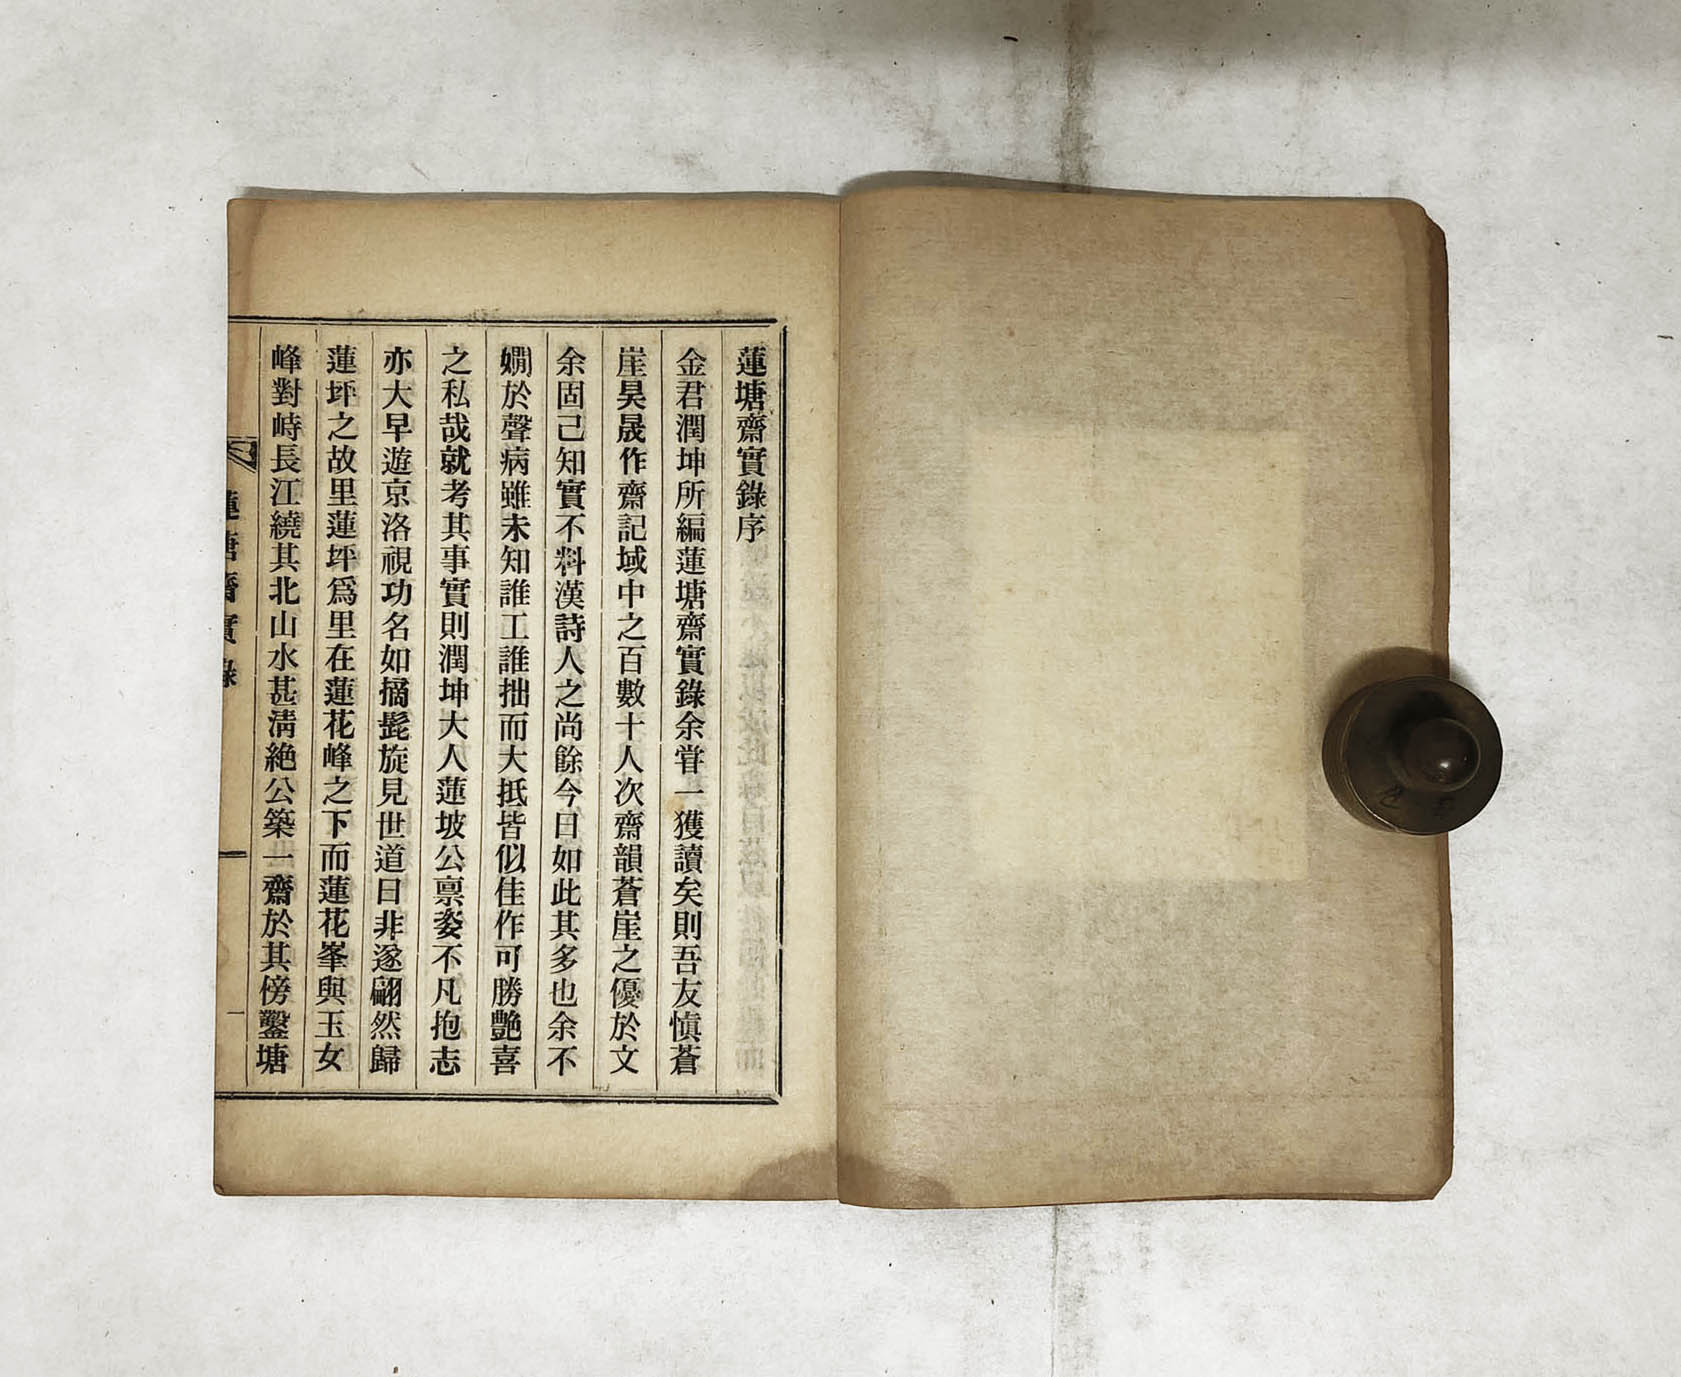 蓮塘齋實錄序
金君潤坤所編蓮塘齋實錄余甞一獲讀矣則吾友愼蒼
崖昊晟作齋記域中之百數十人次齋韻蒼崖之優於文
余固己知實不料漢詩人之尚餘今日如此其多也余不
嫺於聲病雖未知誰工誰拙而大抵皆似佳作可勝艶喜
之私哉就考其事實則潤坤大人蓮坡公禀姿不凡抱志
亦大早遊京洛視功名如摘髭旋見世道日非遂翩然歸
蓮坪之故里蓮坪爲里在蓮花峰之下而蓮花峯與玉女
峰對峙長江繞其北山水甚淸絶公築一齋於其傍鑿塘
蓮塘齋實錄
一